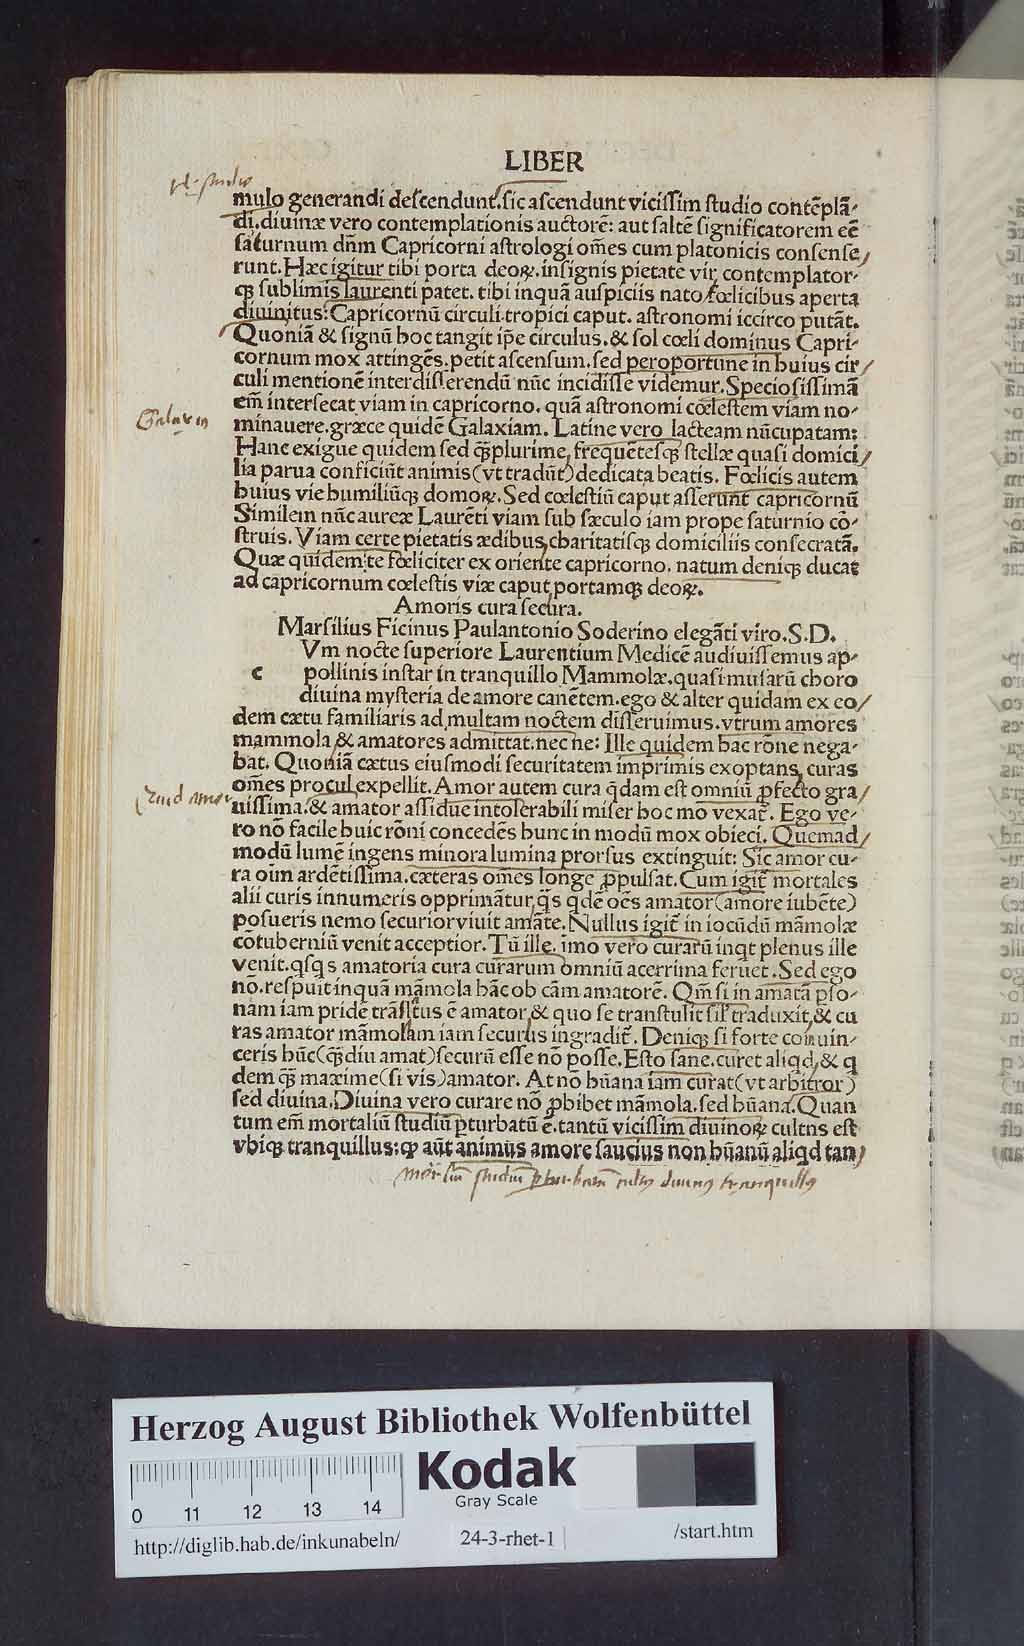 LIBER
mulo generandi descendunt. sic ascendunt vicissim studio contēplā-
di. diuinæ vero contemplationis auctorē: aut saltē significatorem eē
saturnum dn̄m Capricorni astrologi om̄es cum platonicis consense/
runt. Hæc igitur tibi porta deoꝝ. insignis pietate vir contemplator-
qꝫ sublimis laurenti patet. tibi inquā auspiciis nato fœlicibus aperta
diuinitus: Capricornū circuli tropici caput. astronomi iccirco putāt.
Quoniā & signū hoc tangit ip̄e circulus. & sol cœli dominus Capri-
cornum mox attingēs. petit ascensum. sed peroportune in huius cir/
culi mentionē interdisserendū nūc incidisse videmur. Speciosissimā
em̄ intersecat viam in capricorno. quā astronomi cœlestem viam no-
minauere. græce quidē Galaxiam. Latine vero lacteam nūcupatam:
Hanc exigue quidem sed qꝫplurime, frequētesqꝫ stellæ quasi domici/
lia parua conficiūt animis (vt tradūt) dedicata beatis. Fœlicis autem
huius vie humiliūqꝫ domoꝝ. Sed cœlestiū caput asserunt capricornū
Similem nūc aureæ Laurēti viam sub sæculo iam prope saturnio cō-
struis. Viam certe pietatis ædibus, charitatisqꝫ domiciliis consecratā.
Quæ quidem te fœliciter ex oriente capricorno. natum deniqꝫ ducat
ad capricornum cœlestis viæ caput, portamqꝫ deoꝝ.
Amoris cura secura.
Marsilius Ficinus Paulantonio Soderino elegāti viro. S. D.
Vm nocte superiore Laurentium Medicē audiuissemus ap-
c pollinis instar in tranquillo Mammolæ. quasi musarū choro
diuina mysteria de amore canētem. ego & alter quidam ex eo/
dem cætu familiaris ad multam noctem disseruimus. vtrum amores
mammola & amatores admittat. nec ne: Ille quidem hac rōne nega-
bat. Quoniā cætus eiusmodi securitatem imprimis exoptans, curas
om̄es procul expellit. Amor autem cura q̄dam est omniū ꝓfecto gra/
uissima. & amator assidue intolerabili miser hoc mō vexat̄. Ego ve-
ro nō facile huic rōni concedēs hunc in modū mox obieci. Quemad/
modū lumē ingens minora lumina prorsus extinguit: Sic amor cu-
ra oīum ardētissima. cæteras om̄es longe ꝓpulsat. Cum igit̄ mortales
alii curis innumeris opprimātur, q̄s q̄dē oēs amator (amore iubēte)
posueris nemo securior viuit amāte. Nullus igit̄ in iocūdū māmolæ
cōtuberniū venit acceptior. Tū ille. imo vero curarū inqt plenus ille
venit. qsqs amatoria cura curarum omniū acerrima feruet. Sed ego
nō. respuit inquā māmola hāc ob cām amatorē. Qm̄ si in amatā ꝑso-
nam iam pridē trāsitus ē amator, & quo se transtulit sil̄ traduxit, & cu
ras amator māmolam iam securus ingredit̄. Deniqꝫ si forte conuin-
ceris hūc (qꝫdiu amat) securū esse nō posse. Esto sane. curet aliqd, & q
dem qꝫ maxime (si vis) amator. At nō hūana iam curat (vt arbitror)
sed diuina. Diuina vero curare nō ꝓhibet māmola. sed hūana. Quan
tum em̄ mortaliū studiū ꝑturbatū ē. tantū vicissim diuinoꝝ cultus est
vbiqꝫ tranquillus: ꝙ aūt animus amore saucius non hūanū aliqd tan/
Galaxia
Quid amor
Herzog August Bibliothek Wolfenbüttel
Kodak
Gray Scale
0 11 12 13 14
http://diglib.hab.de/inkunabeln/ 24-3-rhet-1 /start.htm